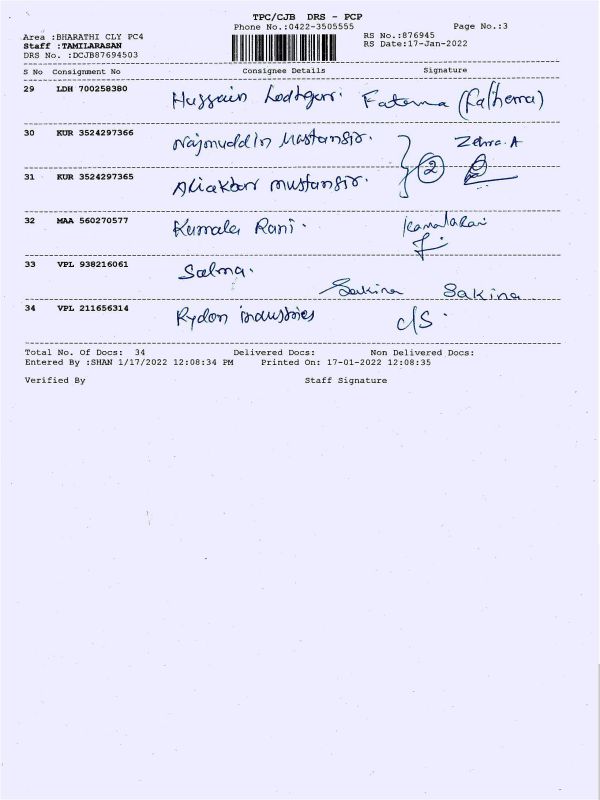 TPC/CJB DRS - PCP
Phone No.:0422-3505555 Page No.:3
Area :BHARATHI CLY PC4 RS No.:876945
Staff :TAMILARASAN RS Date:17-Jan-2022
DRS No. :DCJB87694503
S No Consignment No Consignee Details Signature
29 LDH 700258380 Hussain Fatema
30 KUR 3524297366 Najmuddin Mustansir. Zehra.A
31 KUR 3524297365 Aliakbar mustansir. 2
32 MAA 560270577 Kamala Rani.
33 VPL 938216061 Salma.
Sakina Sakina
34 VPL 211656314 Rydon industries c/s.
Total No. Of Docs: 34 Delivered Docs: Non Delivered Docs:
Entered By :SHAN 1/17/2022 12:08:34 PM Printed On: 17-01-2022 12:08:35
Verified By Staff Signature